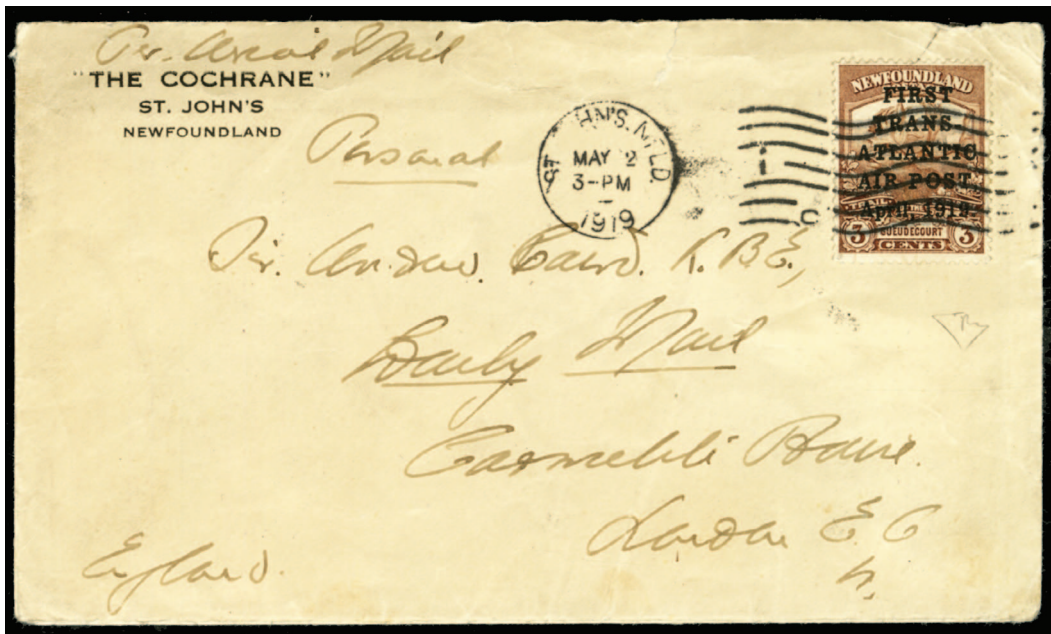 Per. Aerial Mail
"THE COCHRANE"
ST. JOHN'S
NEWFOUNDLAND
Personal
ST. JOHN'S. NFLD.
MAY 2
3-PM
1919
NEWFOUNDLAND
FIRST
TRANS-
ATLANTIC
AIR POST
April, 1919.
GUEUDECOURT
3 CENTS 3
Sir. Andrew. Caird. K. B. E.,
Daily Mail
Carmelite House.
London E. C
England.